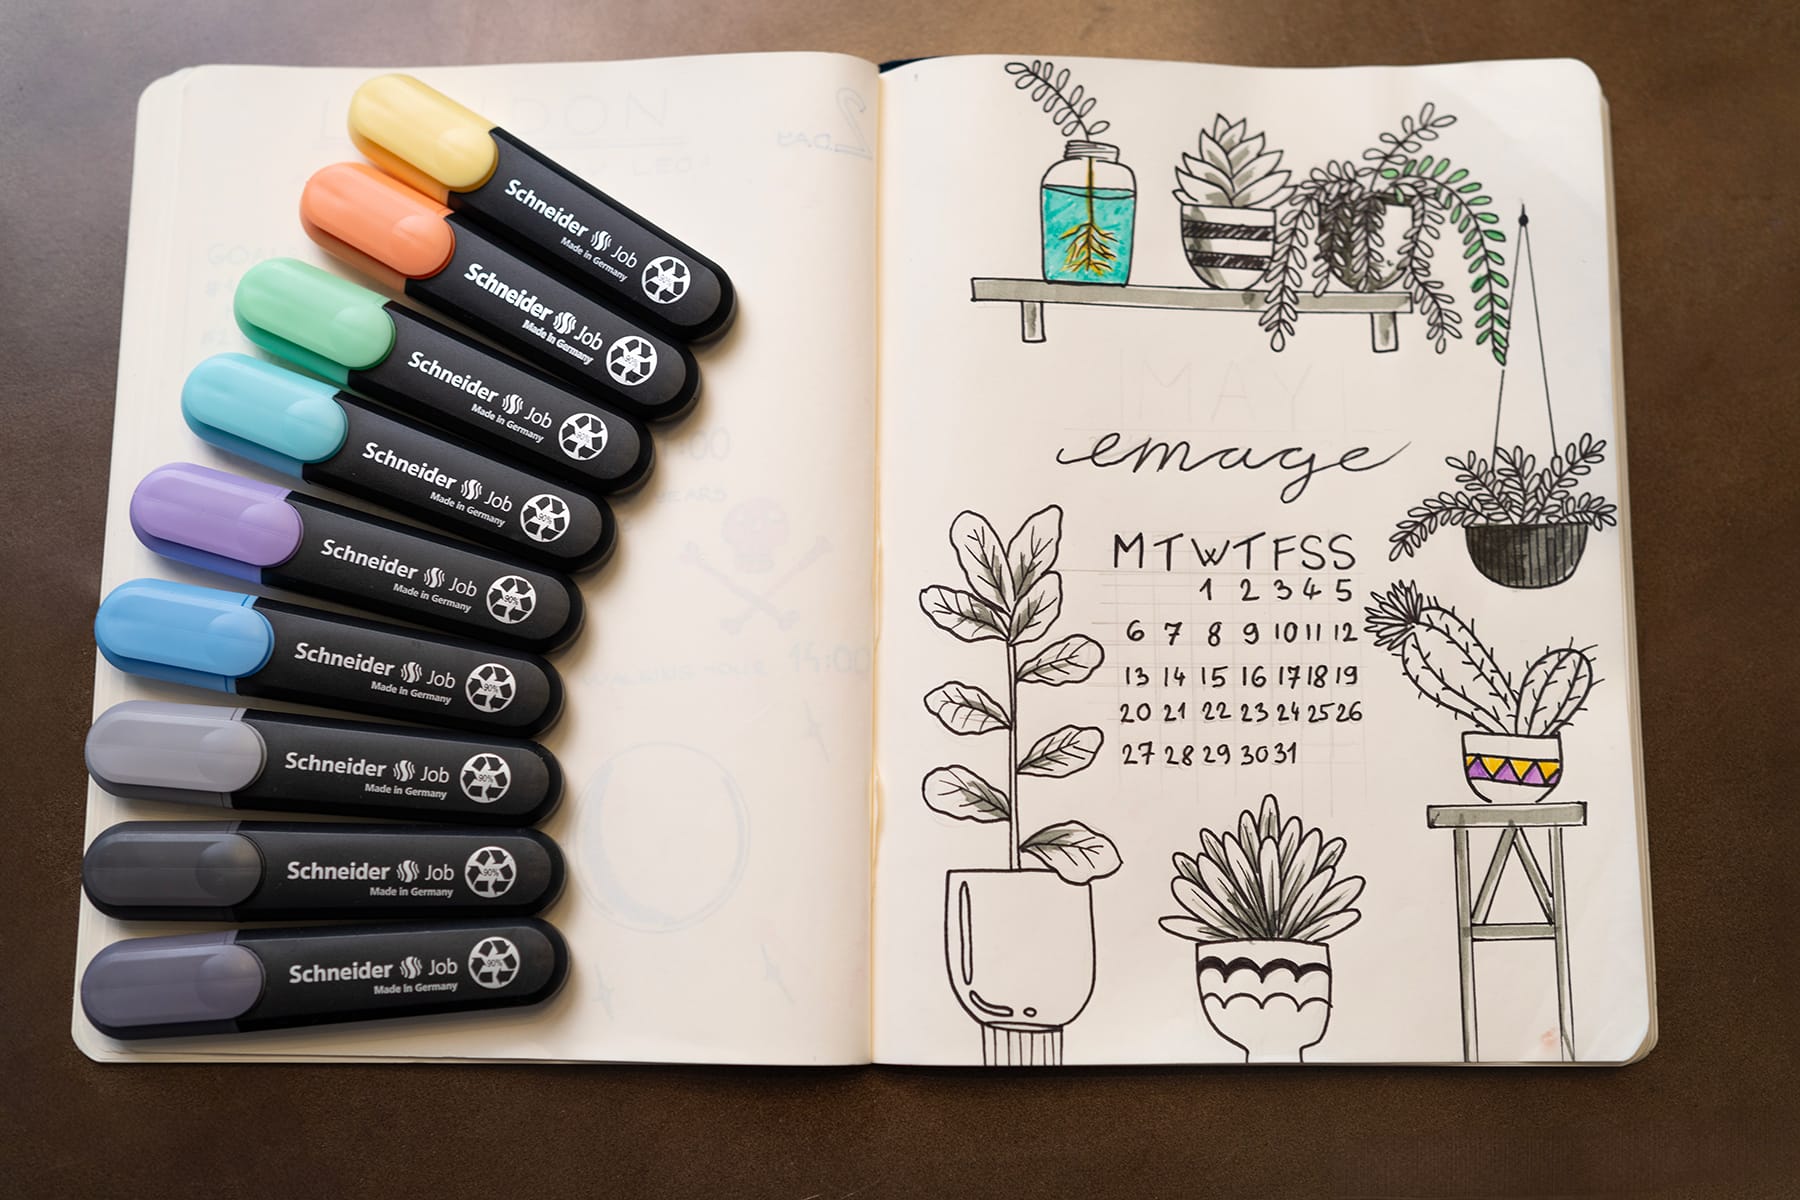 Schneider Job
Made in Germany
90%
Schneider Job
Made in Germany
90%
Schneider Job
Made in Germany
90%
Schneider Job
Made in Germany
90%
Schneider Job
Made in Germany
90%
Schneider Job
Made in Germany
90%
Schneider Job
Made in Germany
90%
Schneider Job
Made in Germany
90%
Schneider Job
Made in Germany
90%
MAY
emage
M T W T F S S
1 2 3 4 5
6 7 8 9 10 11 12
13 14 15 16 17 18 19
20 21 22 23 24 25 26
27 28 29 30 31